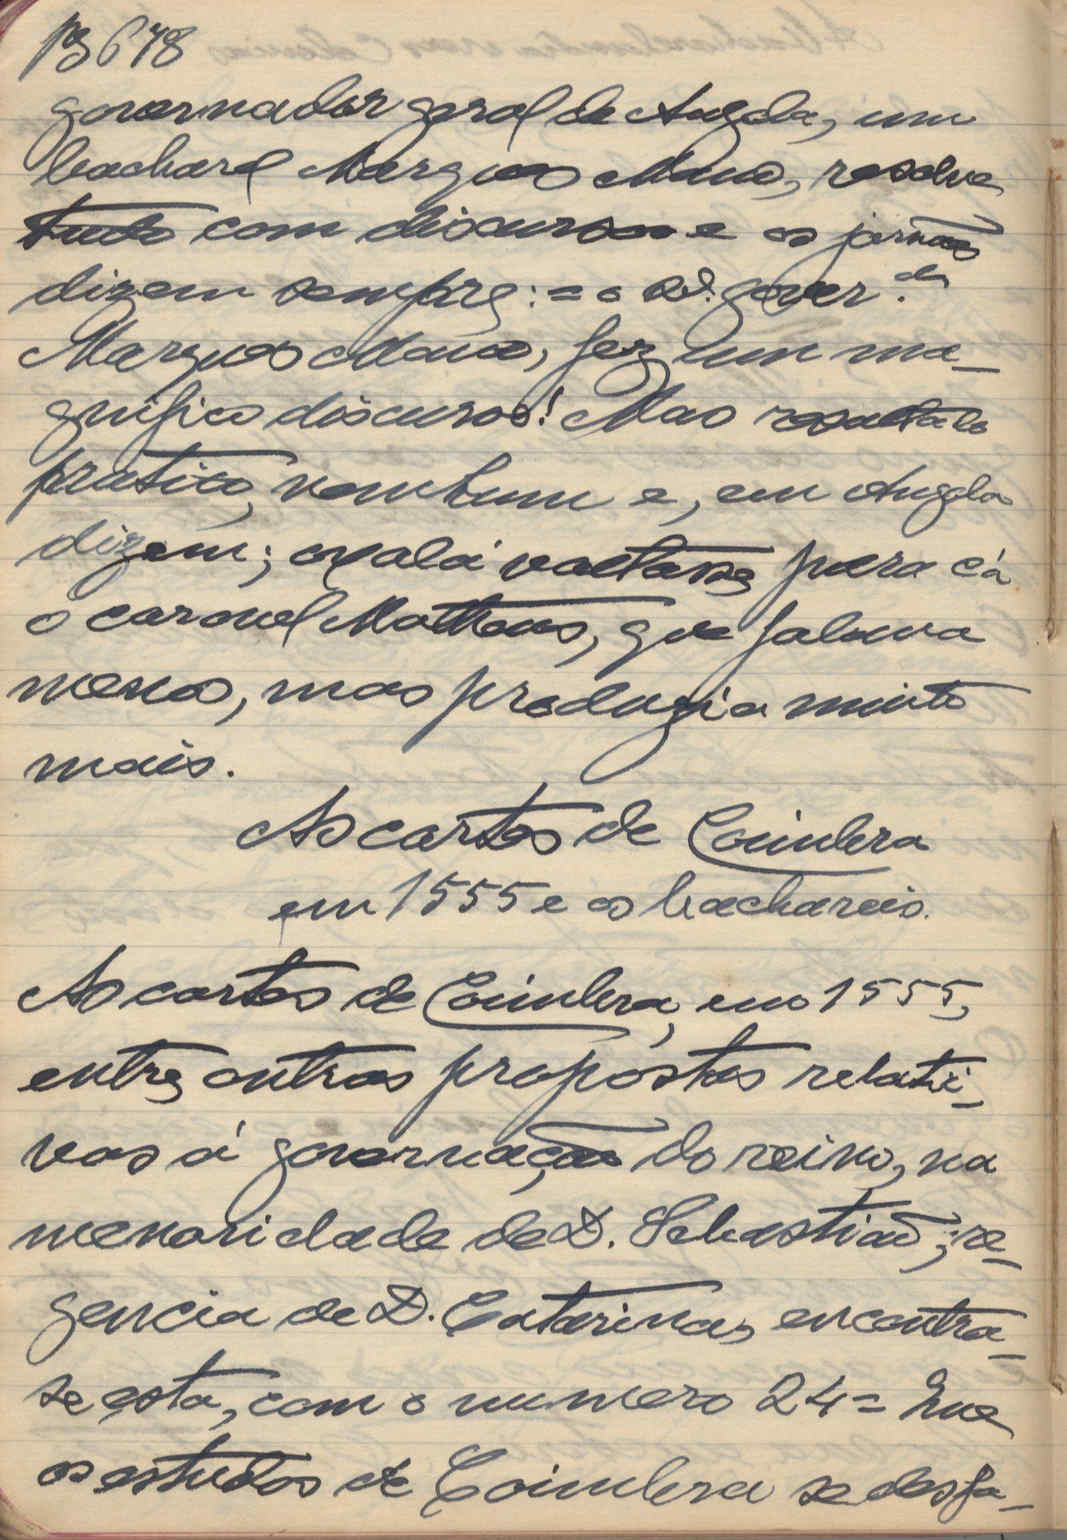 pg 678
governador geral de Angola, um
bacharel Marques Mano, resolve
tudo com discursos e os jornaes
dizem sempre: = o sr. gover.dor
Marques Mano, fez um ma-
gnifico discurso! Mas resultado
pratico, nenhum e, em Angola
dizem; oxalá voltasse para cá
o coronel Matheus, que falava
menos, mas produzia muito
mais.
As cartes de Coimbra
em 1555 e os bachareis.
As cortes de Coimbra, em 1555,
entre outras propostas relati-
vas á governação do reino, na
menoridade de D. Sebastião, re-
gencia de D. Catarina, encontra-
se esta, com o numero 24 = Que
os estudos de Coimbra se desfa-